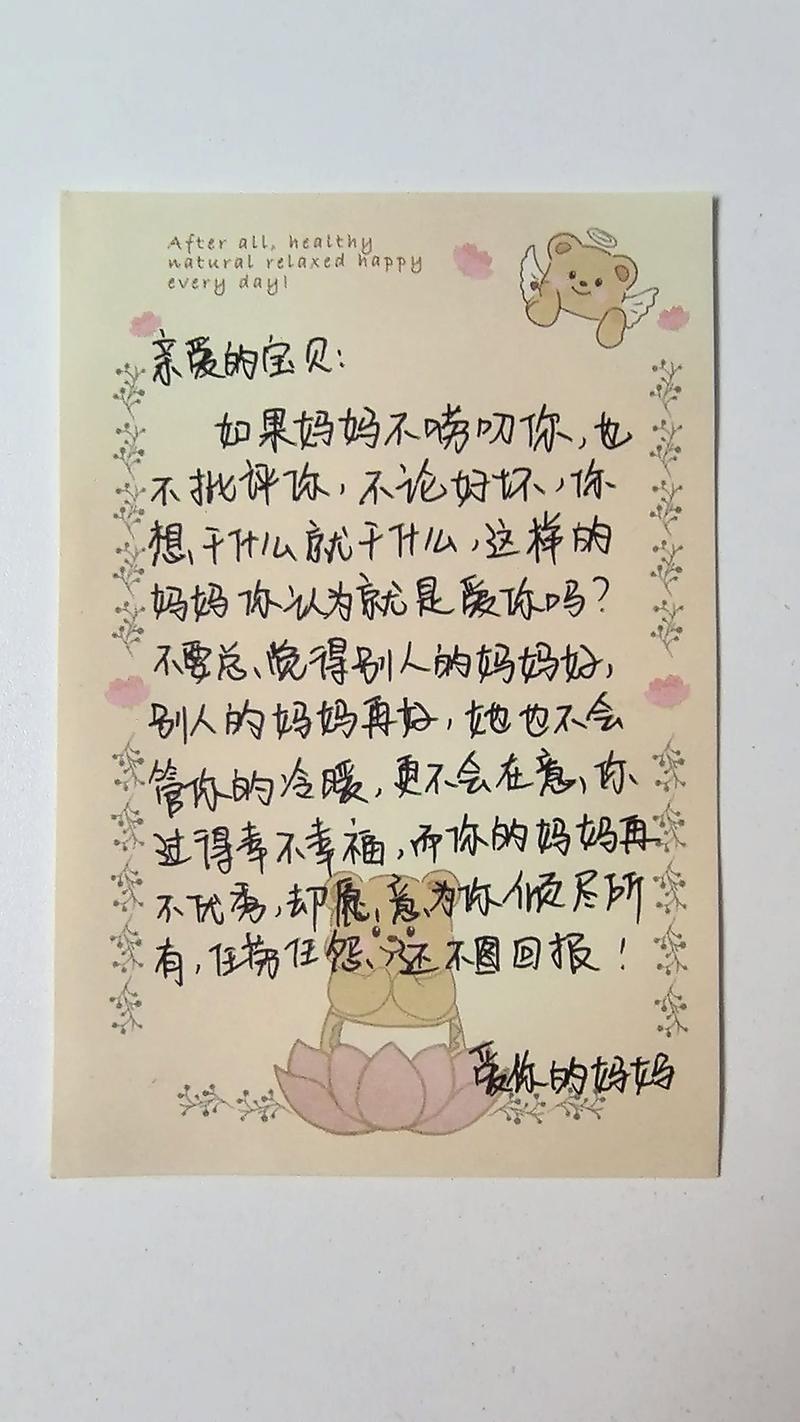 After all, healthy
natural relaxed happy
every day!
亲爱的宝贝：
如果妈妈不唠叨你，也
不批评你，不论好坏，你
想干什么就干什么，这样的
妈妈你认为就是爱你吗？
不要总觉得别人的妈妈好，
别人的妈妈再好，她也不会
管你的冷暖，更不会在意你
过得幸不幸福，而你的妈妈再
不优秀，却愿意为你倾尽所
有，任劳任怨，还不图回报！
爱你的妈妈